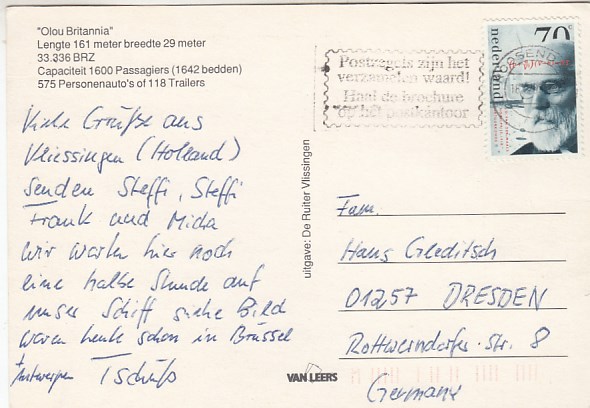 "Olou Britannia"
Lengte 161 meter breedte 29 meter
33.336 BRZ
Capaciteit 1600 Passagiers (1642 bedden)
575 Personenauto's of 118 Trailers
Postzegels zijn het
verzamelen waard!
Haal de brochure
op het postkantoor
70
nederland
Viele Grüße aus
Vliessingen (Holland)
Senden Steffi, Steffi
Frank und Micha
wir warten hier noch
eine halbe Stunde auf
unser Schiff siehe Bild
waren heute schon in Brüssel
+ Antwerpen Tschüß
uitgave: De Ruiter Vlissingen
Fam.
Hans Gleditsch
01257 DRESDEN
Rottwerndorfer. Str. 8
Germany
VAN LEERS